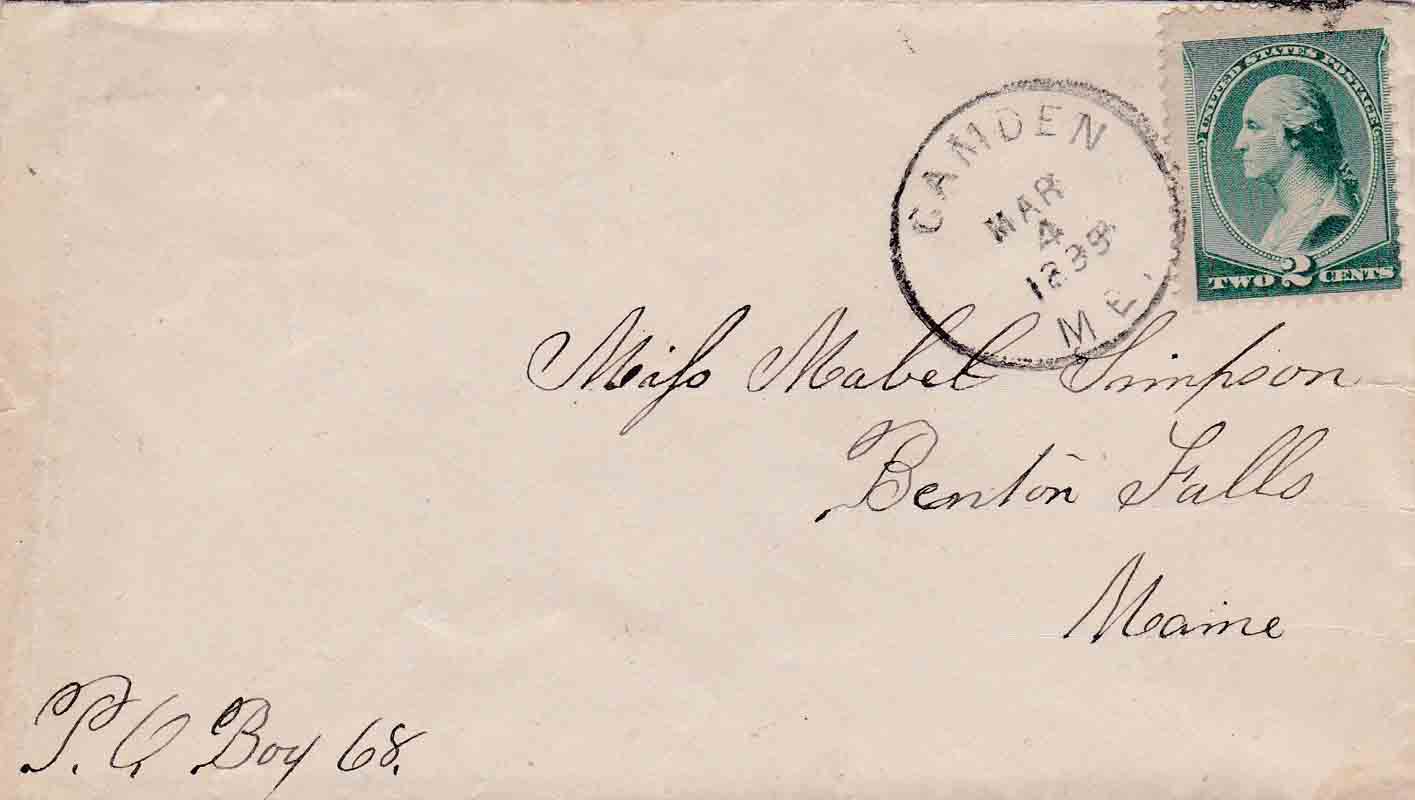 UNITED STATES POSTAGE
TWO 2 CENTS
CAMDEN
MAR
4
ME.
Miſs Mabel Simpson
Benton Falls
Maine
P. O Box 68.